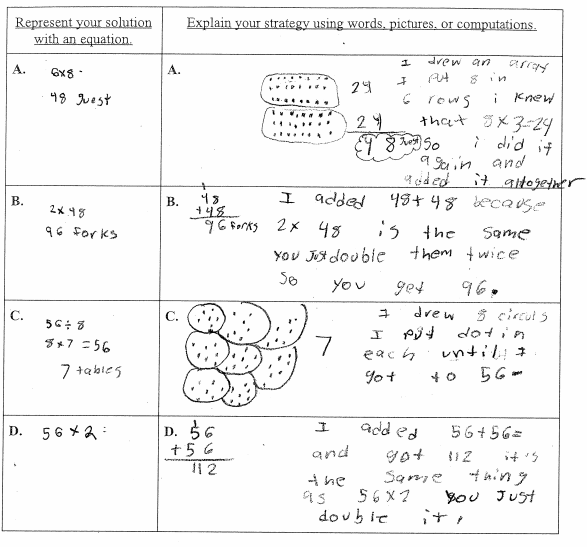 Represent your solution
with an equation.
Explain your strategy using words, pictures, or computations.
A.
6x8
48 guest
A.
24
24
48 guest
I drew an array
I put 8 in
6 rows i knew
that 8x3=24
So i did it
again and
added it altogether
B.
2x48
96 forks
B.
1
48
+48
96 forks
I added 48+48 because
2x 48 is the same
you Just double them twice
So you get 96.
C.
56÷8
8x7=56
7 tables
C.
7
I drew 8 circuls
I put dot in
each until I
got to 56
D.
56x2=
D.
1
56
+56
112
I added 56+56=
and got 112 it's
the same thing
as 56x2 you Just
double it.